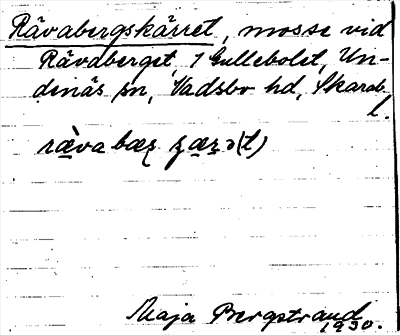 Rävabergskärret, mosse vid
Rävaberget, 1 Gullebolet, Un-
denäs sn, Vadsbo hd, Skarab.
l.
Maja Bergstrand
1930.